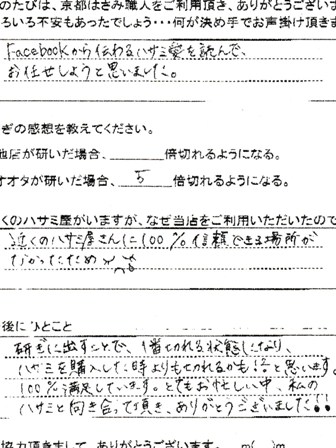 のたびは、京都はさみ職人をご利用頂き、ありがとうござい
ろいろ不安もあったでしょう・・・何が決め手でお声掛け頂き
Facebookから伝わるハサミ愛を読んで、
お任せしようと思いました。
ぎの感想を教えてください。
他店が研いだ場合、＿＿＿＿倍切れるようになる。
オオタが研いだ場合、 5 倍切れるようになる。
くのハサミ屋がいますが、なぜ当店をご利用いただいたので
近くのハサミ屋さんに100%信頼できる場所が
なかったため
後に ひとこと
研ぎに出すことで、1番切れる状態になり、
ハサミを購入した時よりも切れるかも!?と思います。
100%満足しています。とてもお忙しい中、私の
ハサミと向き合って頂き、ありがとうございました!!
協力頂きまして、ありがとうございます。 m( )m